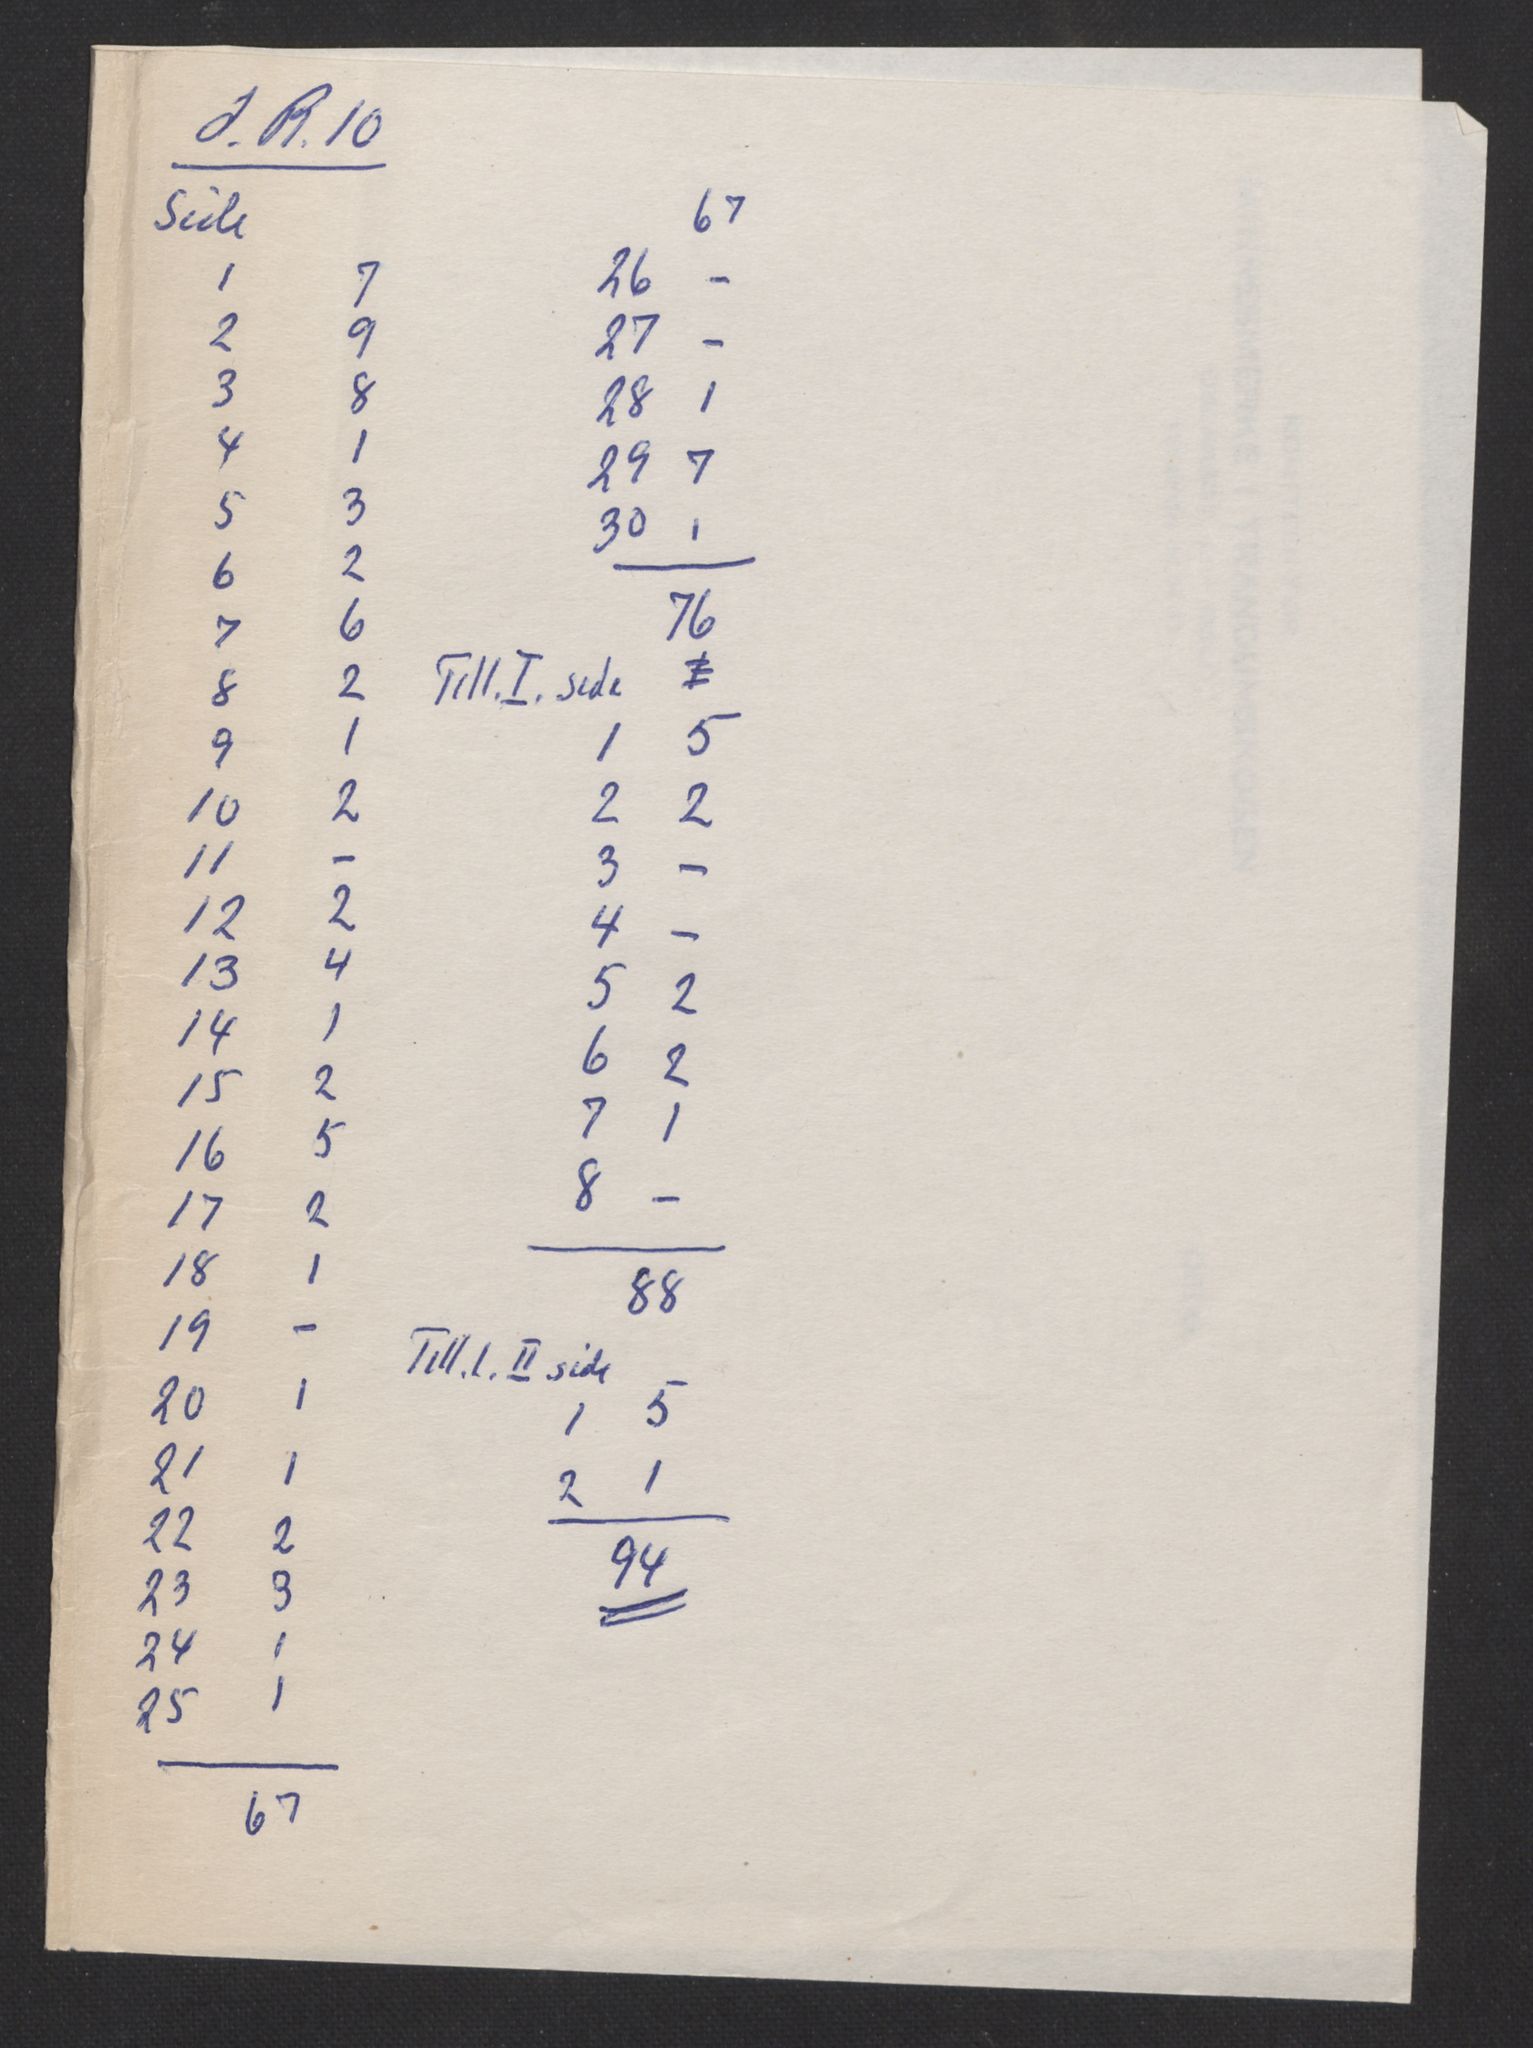 J. R. 10
Side
1 7
2 9
3 8
4 1
5 3
6 2
7 6
8 2
9 1
10 2
11 -
12 2
13 4
14 1
15 2
16 5
17 2
18 1
19 -
20 1
21 1
22 2
23 3
24 1
25 1
67
67
26 -
27 -
28 1
29 7
30 1
76
Till. I. side
1 5
2 2
3 -
4 -
5 2
6 2
7 1
8 -
88
Till. l. II side
1 5
2 1
94